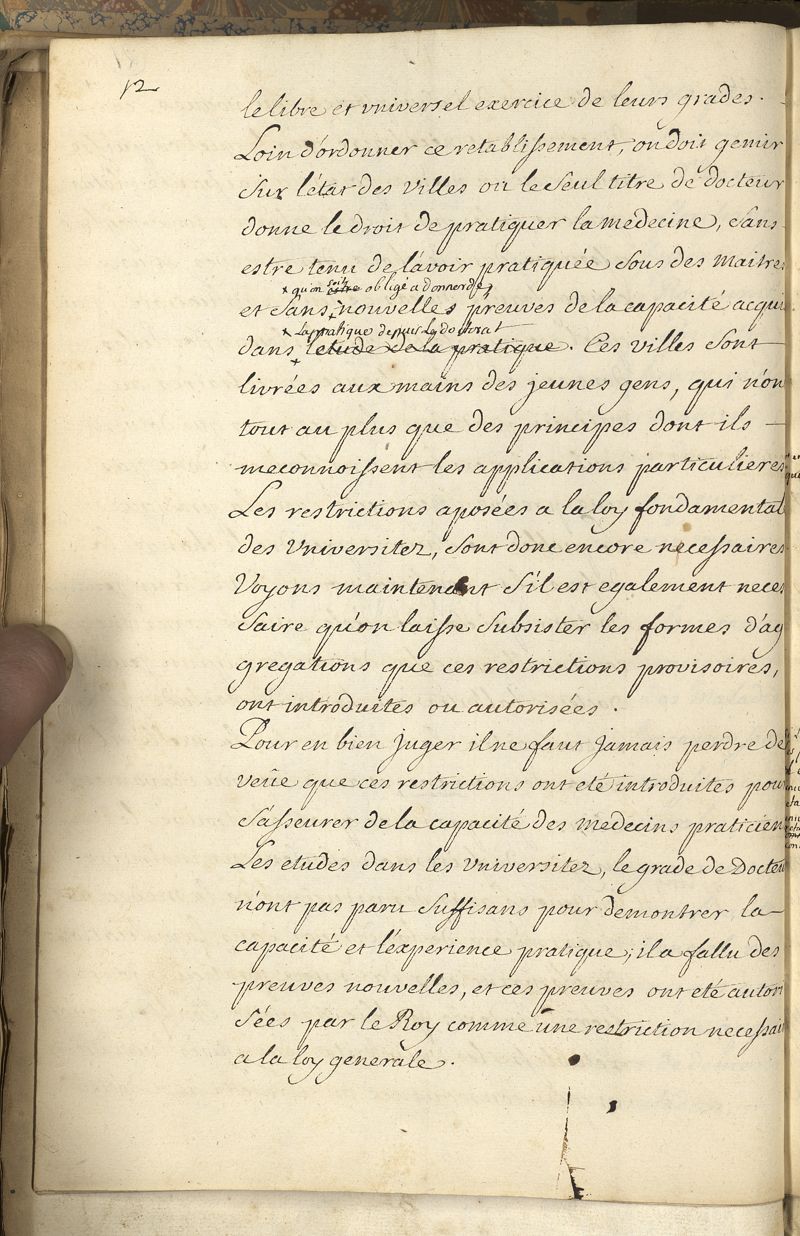 12
le libre et vniversel exercice de leurs grades.
Loin d'ordonner ce retablissement, on doit gemir
sur l'état des villes ou le seul titre de docteur
donne le droit de pratiquer la medecine, sans
estre tenu de l'avoir pratiquée sous des maitres
x qu'on soit estre obligé a donner de
et sans nouvelles preuves de la capacité acqui
x La pratique depuis le doctorat
dans l'etude de la pratique. Ces villes sont
livrées aux mains des jeunes gens, qui n'on
tout au plus que des principes dont ils
meconnoissent les applications particulieres
Les restrictions aposées a la loy fondamental
des Vniversitez, sont donc encore necessaires
Voyons maintenant s'il est egalement neces
saire qu'on laisse subsister les formes d'ag
gregations que ces restrictions provisoires,
ont introduites ou autorisées.
Pour en bien juger il ne faut jamais perdre de
veüe que ces restrictions ont eté introduites pour
s'asseurer de la capacité des medecins praticien
Les etudes dans les Vniversitez, le grade de Docteu
n'ont pas paru suffisans pour demontrer la
capacité et l'éxperience pratique; il a fallu des
preuves nouvelles, et ces preuves ont eté autori
sées par le Roy comme une restriction necessai
a la loy generale.